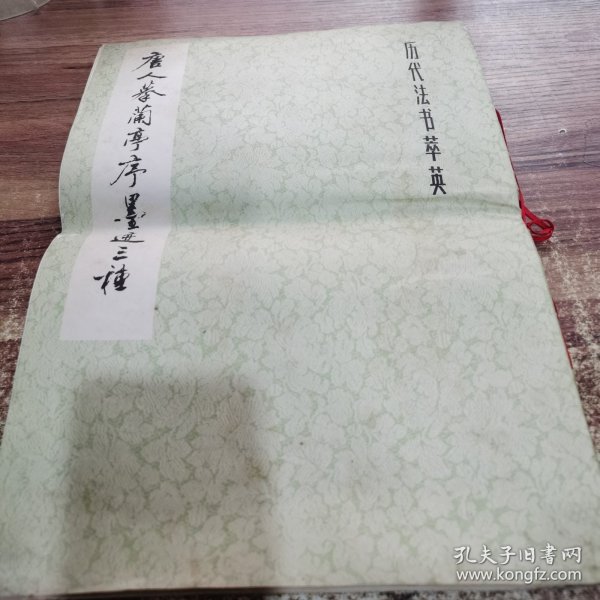 历代法书萃英
唐人摹蘭亭序墨迹三種
孔夫子旧書网
www.kongfz.com